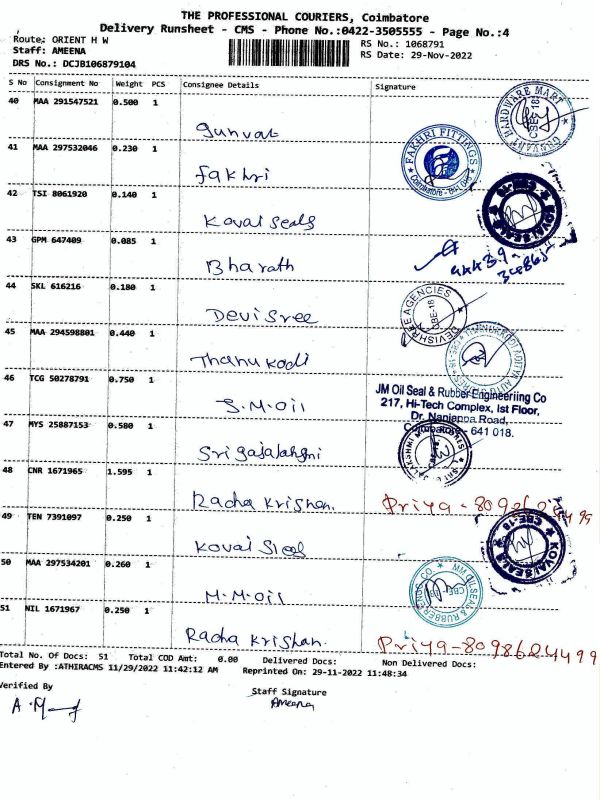 THE PROFESSIONAL COURIERS, Coimbatore
Delivery Runsheet - CMS - Phone No.:0422-3505555 - Page No.:4
Route: ORIENT H W
RS No.: 1068791
Staff: AMEENA
RS Date: 29-Nov-2022
DRS No.: DCJB106879104
S No Consignment No Weight PCS Consignee Details Signature
40 MAA 291547521 0.500 1
Gunvat
HARDWARE MART
CBE-18
41 MAA 297532046 0.230 1
fakhri
FAKHRI FITTINGS
42 TSI 8061920 0.140 1
Kovai Seals
KOVAI SEALS
43 GPM 647409 0.085 1
Bharath
44 SKL 616216 0.180 1
Devi Sree
DEVISHREE AGENCIES
CBE-18
45 MAA 294598801 0.440 1
Thanukodi
46 TCG 50278791 0.750 1
J.M.Oil
JM Oil Seal & Rubber Engineeriing Co
217, Hi-Tech Complex, Ist Floor,
Dr. Nanjappa Road,
Coimbatore - 641 018.
47 MYS 25887153 0.580 1
Sri Gajalakhmi
48 CNR 1671965 1.595 1
Radha Krishan.
Priya-8098624499
49 TEN 7391097 0.250 1
Kovai Seal
KOVAI SEALS
CBE-18
50 MAA 297534201 0.260 1
M.M.Oil
51 NIL 1671967 0.250 1
Radha Krishan.
Priya-8098624499
Total No. Of Docs: 51 Total COD Amt: 0.00 Delivered Docs: Non Delivered Docs:
Entered By :ATHIRACMS 11/29/2022 11:42:12 AM Reprinted On: 29-11-2022 11:48:34
Verified By
Staff Signature
Ameena